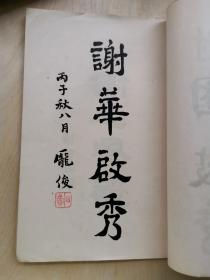 謝華啟秀
丙子秋八月
龐俊